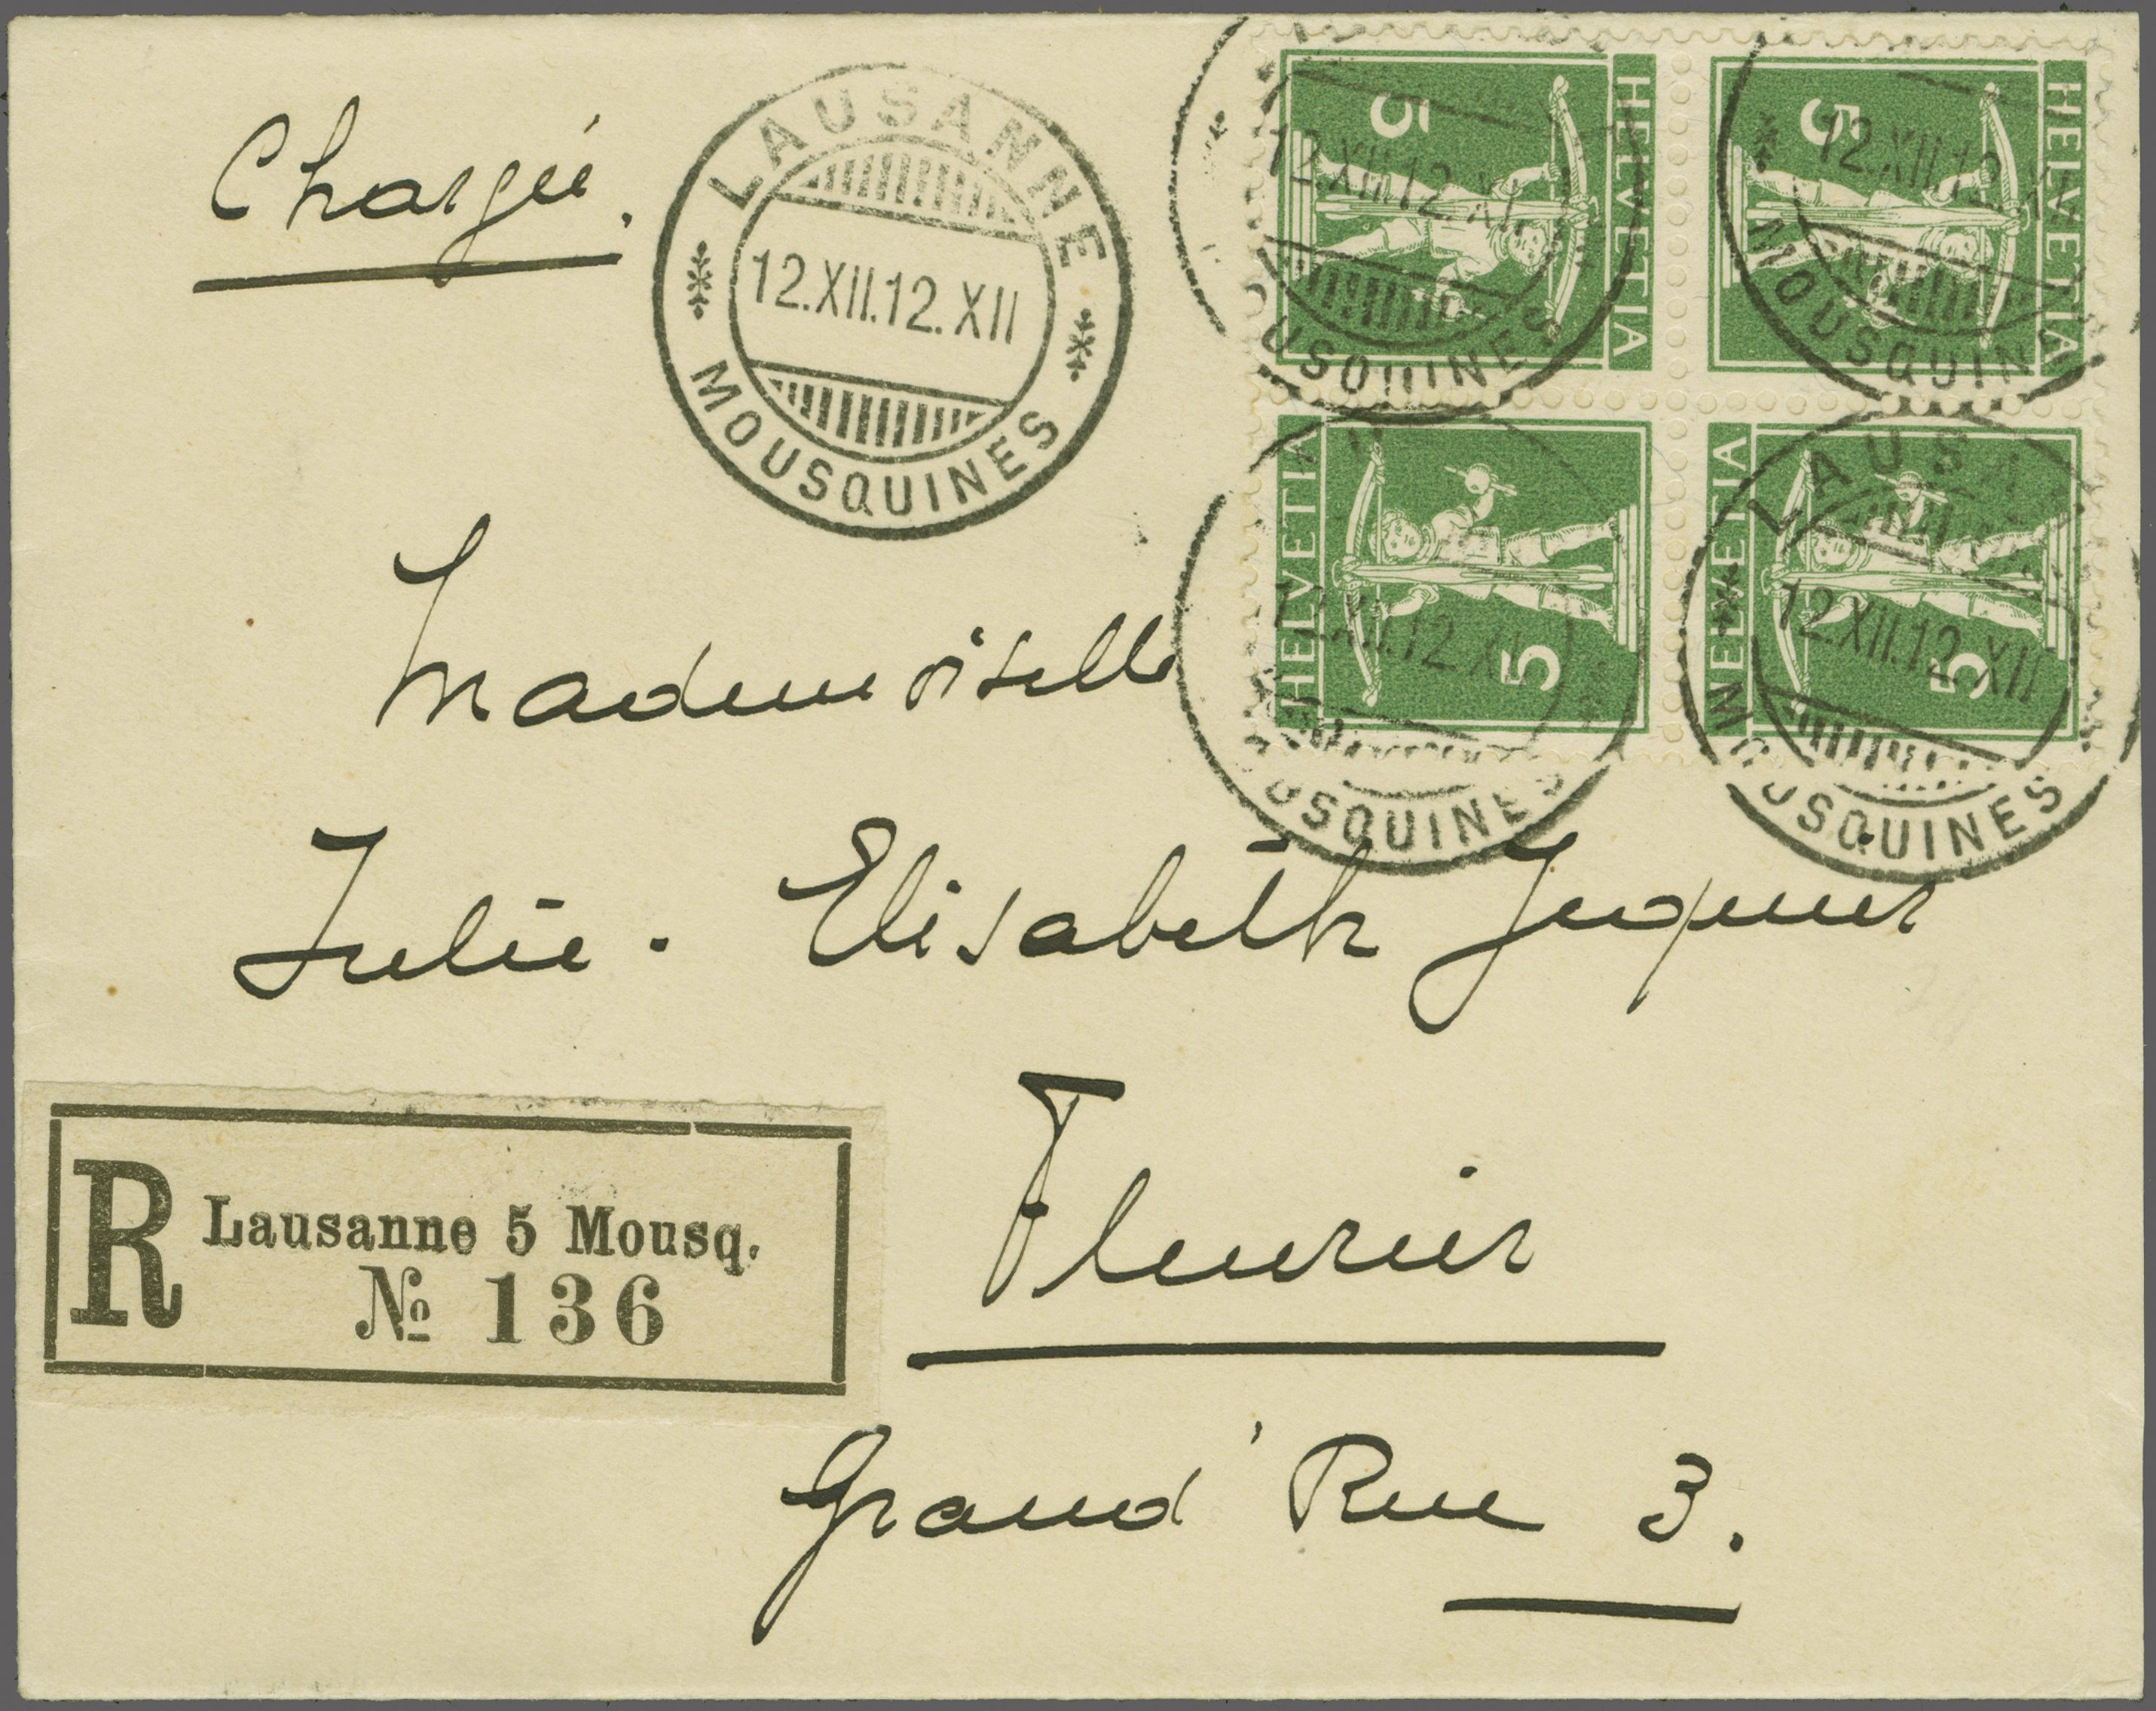 Chargé.
LAUSANNE
12.XII.12.XII
MOUSQUINES
HELVETIA
5
12.XII.12.XII
OUSQUINES
HELVETIA
5
12.XII.12.XII
MOUSQUINES
HELVETIA
5
12.XII.12.XII
OUSQUINES
HELVETIA
5
LAUSA
12.XII.12.XII
MOUSQUINES
Mademoiselle
Julie-Elisabeth Juquier
R Lausanne 5 Mousq.
№ 136
Fleurier
Grand' Rue 3.